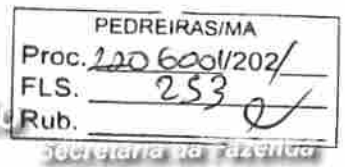 PEDREIRAS/MA
Proc. 2206001/202/
FLS. 253
Rub.
Secretaria da Fazenda